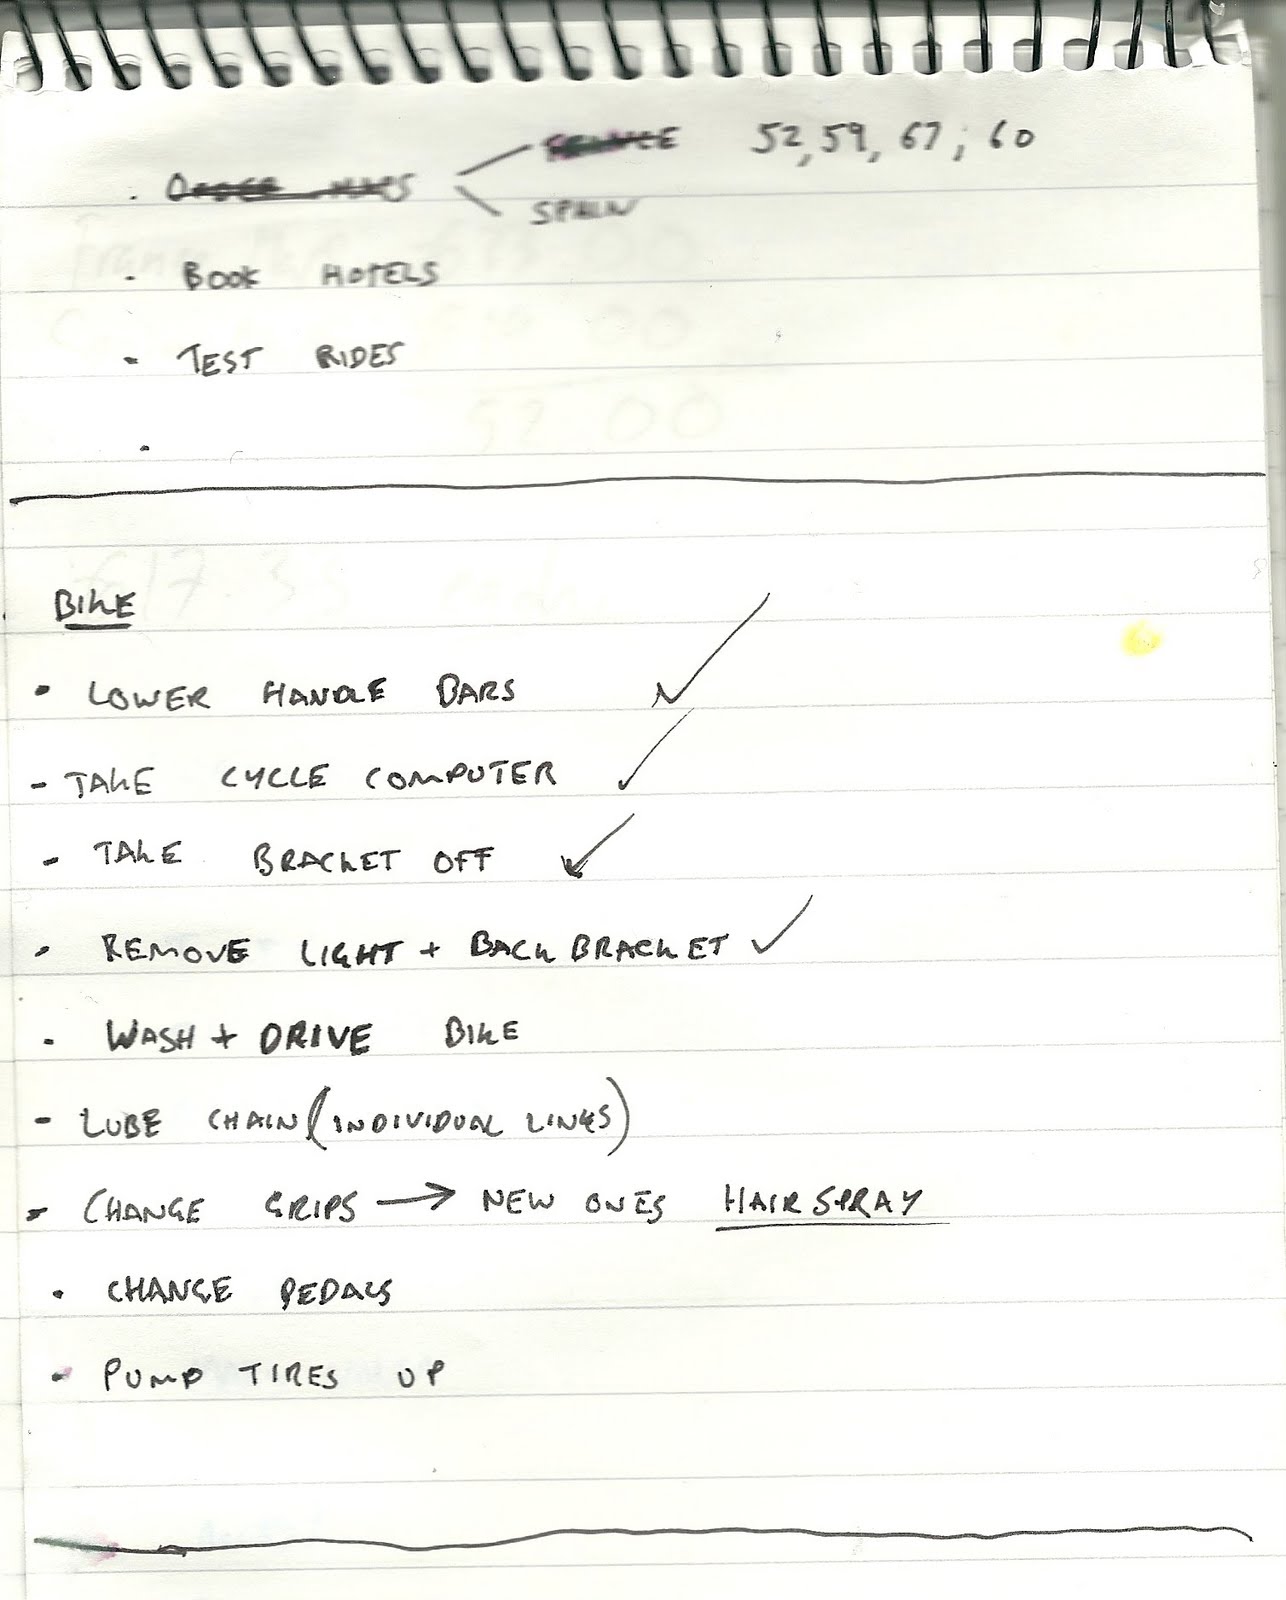 FRANCE 52, 59, 67, 60
· ORDER MAPS
SPAIN
· BOOK HOTELS
· TEST RIDES
·
BIKE
· LOWER HANDLE BARS ✓
- TAKE CYCLE COMPUTER ✓
- TAKE BRACKET OFF ✓
· REMOVE LIGHT + BACK BRACKET ✓
· WASH + DRIVE BIKE
- LUBE CHAIN (INDIVIDUAL LINKS)
- CHANGE GRIPS → NEW ONES HAIRSPRAY
· CHANGE PEDALS
- PUMP TIRES UP